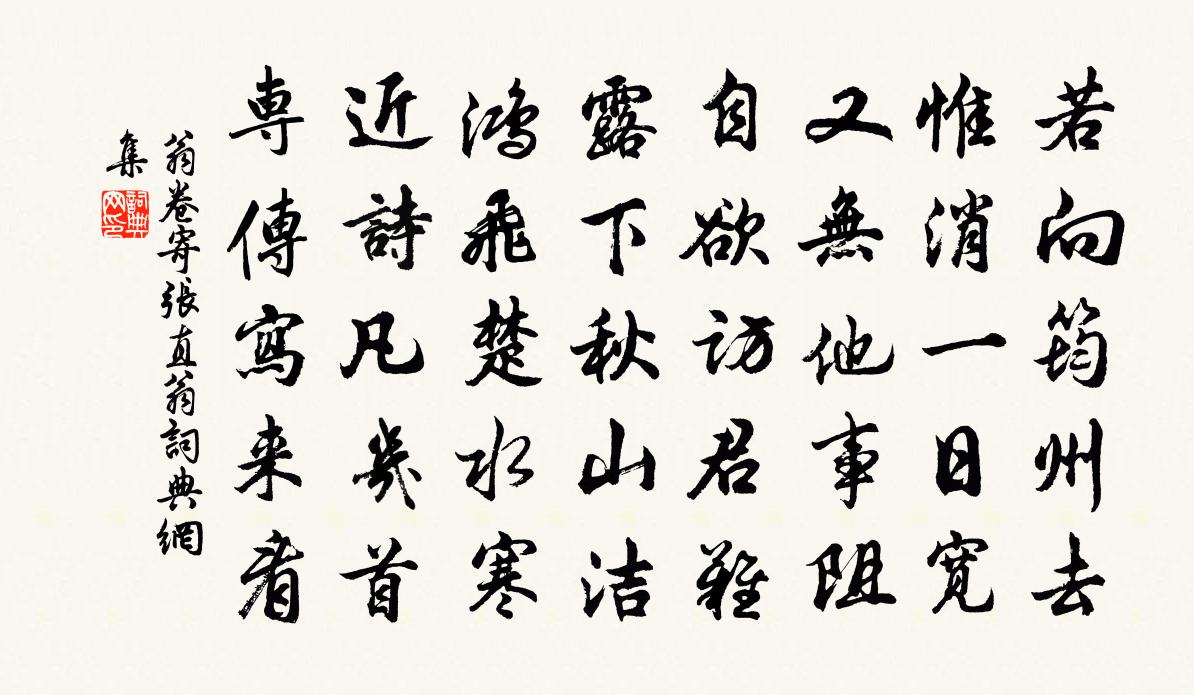 若向筠州去
惟消一日寛
又無他事阻
自欲訪君難
露下秋山洁
鴻飛楚水寒
近詩凡幾首
専傳寫来看
翁卷寄張直翁詞典網
集
詞典
网印